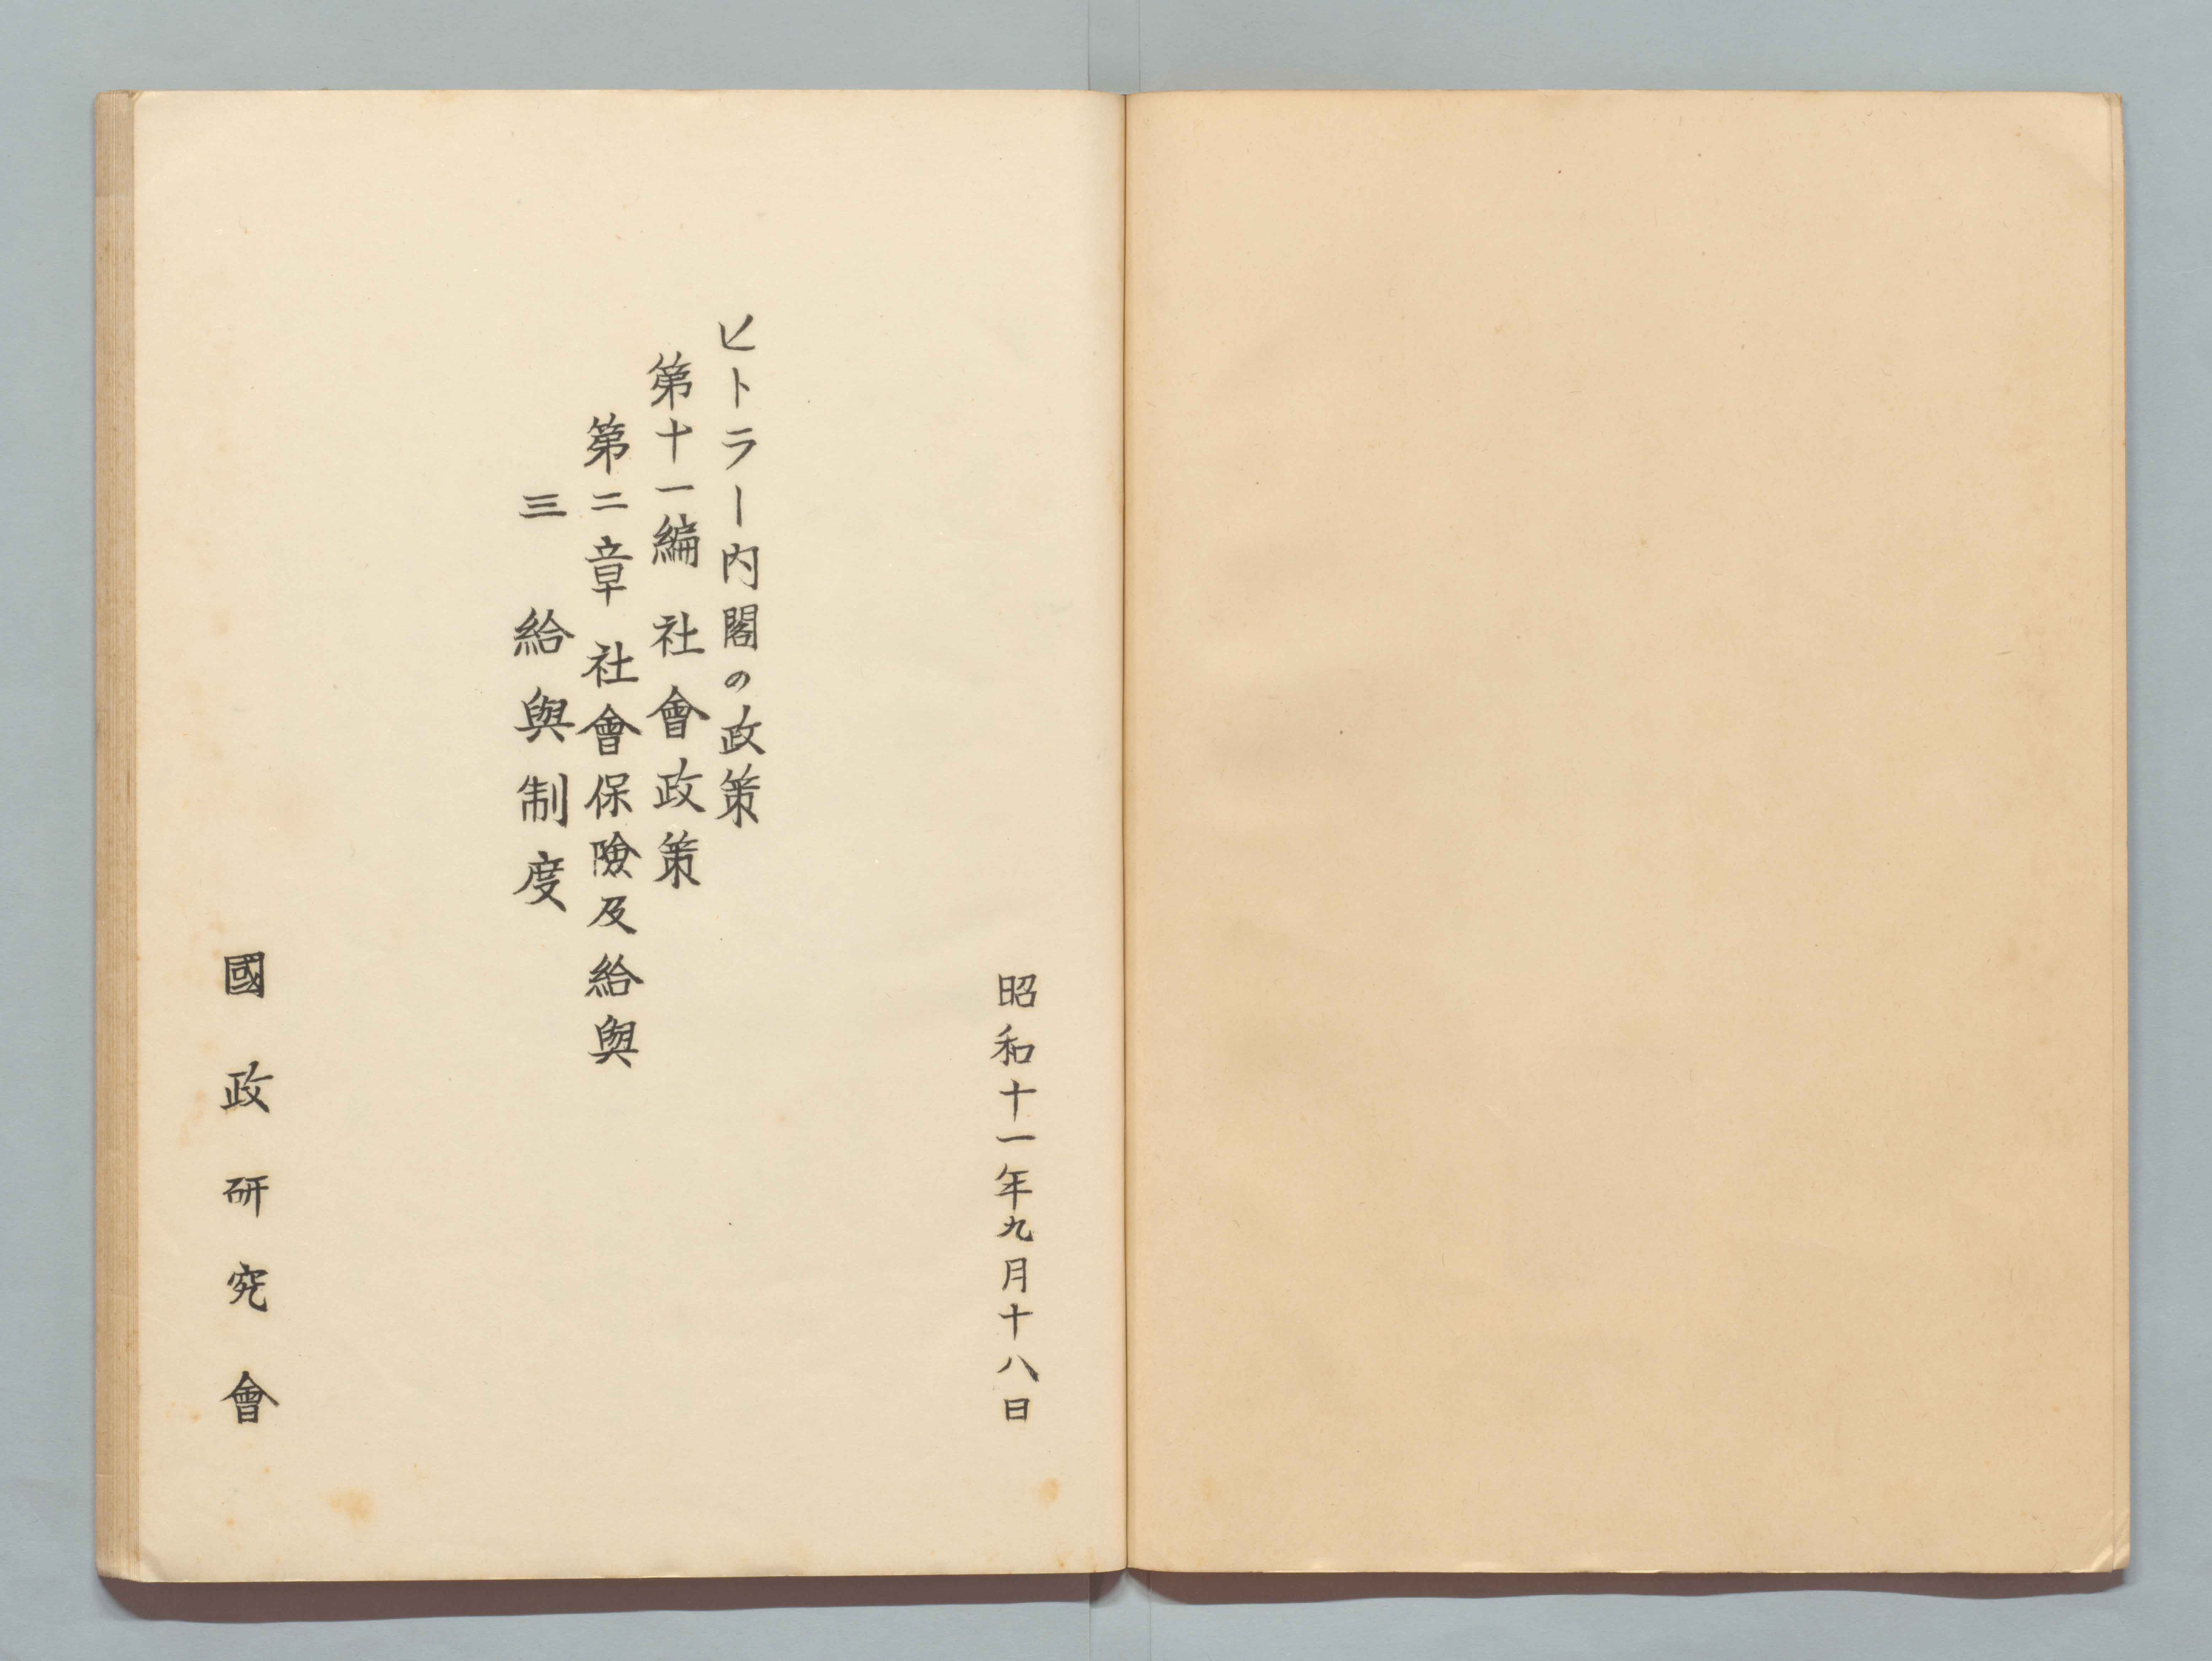 昭和十一年九月十八日
ヒトラー内閣の政策
第十一編 社會政策
第二章 社會保險及給與
三 給與制度
國政研究會